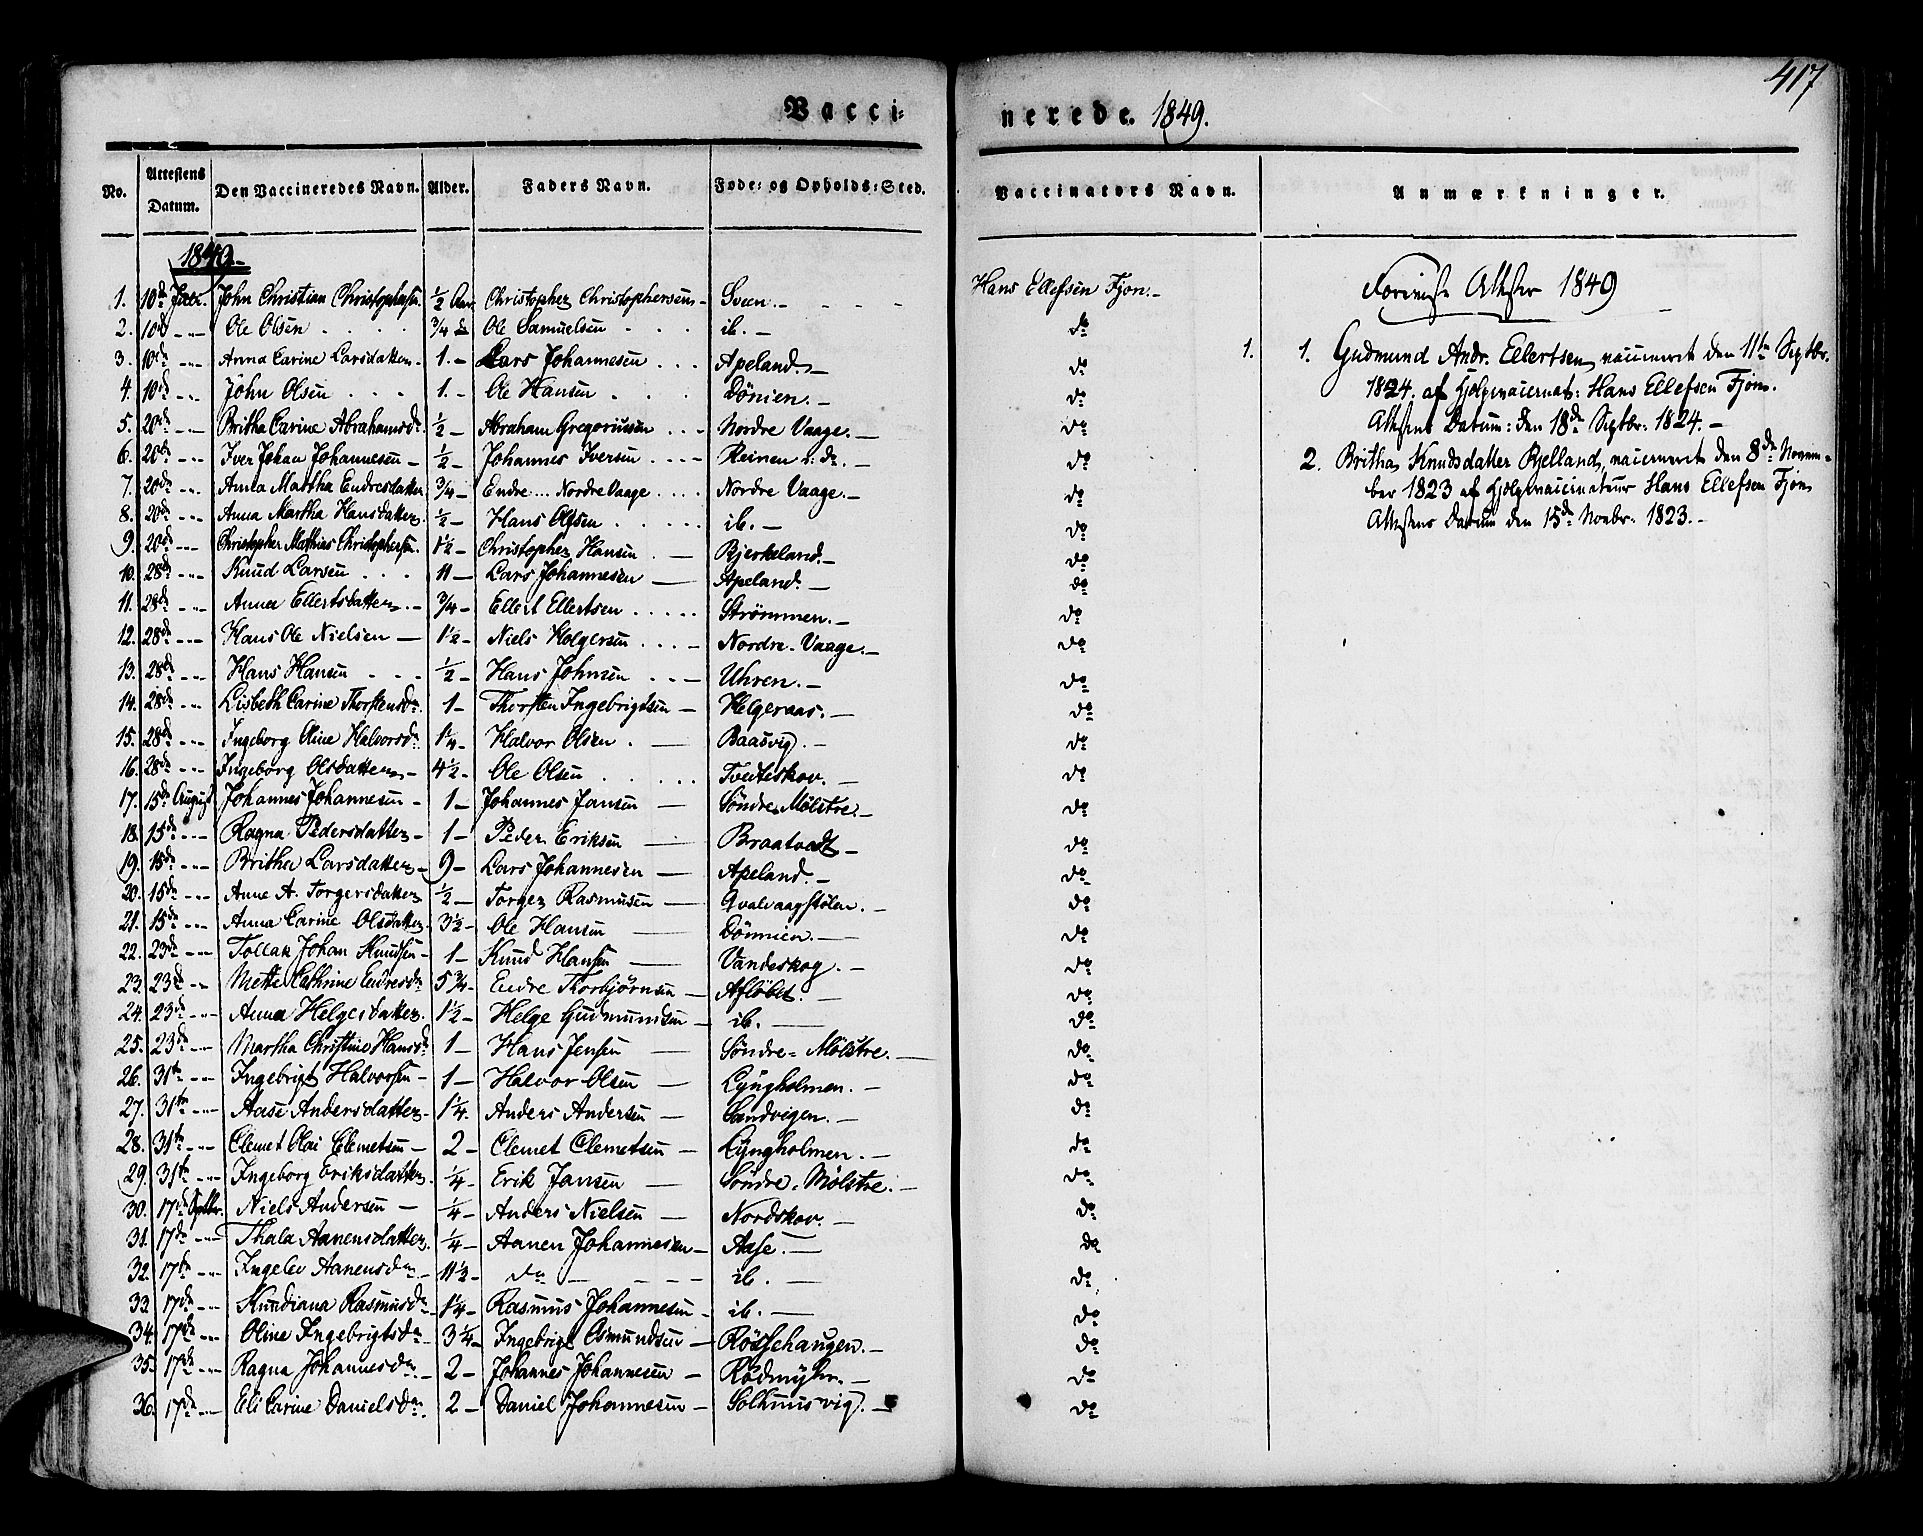 417
Vacci-
nerede. 1849.
No. Attestens Datum. Den Vaccineredes Navn. Alder. Faders Navn. Føde- og Opholds-Sted. Vaccinators Navn. Anmærkninger.
1849.
1. 10de John Christian Christophersen ½ Aar Christopher Christophersen Sveen. Hans Ellefsen Fjon.
2. 10de Ole Olsen ¾ do Ole Samuelsen ib. do
3. 10de Anna Carine Larsdatter 1. Lars Johannesen Apeland. do
4. 10de John Olsen 1. Ole Hansen Dönien. do
5. 20de Britha Carine Abrahamsdr ½ Abraham Gregoriussen Nordre Vaage. do
6. 20de Iver Johan Johannesen ½ Johannes Iversen Reinen i do. do
7. 20de Anna Martha Endresdatter ¾ Endre ... Nordre Vaage Nordre Vaage. do
8. 20de Anna Martha Hansdatter ½ Hans Olsen ib. do
9. 20de Christopher Mathias Christophersen 1½ Christopher Hansen Bjerkeland. do
10. 28de Knud Larsen 11 Lars Johannesen Apeland. do
11. 28de Anna Ellertsdatter ¾ Ellert Ellertsen Strömmen. do
12. 28de Hans Ole Nielsen 1½ Niels Holgersen Nordre Vaage. do
13. 28de Hans Hansen ½ Hans Johnsen Uhren. do
14. 28de Lisbeth Carine Thorstensdr 1 Thorsten Ingebrigtsen Helgeraas. do
15. 28de Ingeborg Oline Halvorsdr 1¼ Halvor Olsen Baasvig. do
16. 28de Ingeborg Olsdatter 4½ Ole Olsen Tveiteskov. do
17. 15de August Johannes Johannesen 1 Johannes Jansen Söndre Mölstre. do
18. 15de Ragna Pedersdatter 1 Peder Eriksen Braatvedt do
19. 15de Britha Larsdatter 9 Lars Johannesen Apeland. do
20. 15de Anne A. Torgersdatter ½ Torger Rasmusen Qvalvaagstölen. do
21. 15de Anna Carine Olsdatter 3½ Ole Hansen Dönnien. do
22. 23de Tollak Johan Knudsen 1 Knud Hansen Vandeskog. do
23. 23de Mette Cathrine Endresdr 5¾ Endre Thorbjörnsen Aflöbet. do
24. 23de Anna Helgesdatter 1½ Helge Gudmundsen ib. do
25. 23de Martha Christine Hansdr 1 Hans Jensen Söndre Mölstre. do
26. 31te Ingebrigt Halvorsen 1 Halvor Olsen Lyngholmen. do
27. 31te Aase Andersdatter 1¼ Anders Andersen Sandvigen. do
28. 31te Clemet Olai Clemetsen 2 Clemet Clemetsen Lyngholmen. do
29. 31te Ingeborg Eriksdatter ¼ Erik Jansen Söndre Mölstre. do
30. 17de Septbr. Niels Andersen ¼ Anders Nielsen Nordskov. do
31. 17de Thala Aanensdatter ¼ Aanen Johannesen Aase. do
32. 17de Ingelev Aanensdr 11½ do ib. do
33. 17de Kundiana Rasmusdr 1¼ Rasmus Johannesen ib. do
34. 17de Oline Ingebrigtsdr 3¼ Ingebrigt Osmundsen Rössehaugen. do
35. 17de Ragna Johannesdr 2 Johannes Johannesen Rödmyhr. do
36. 17de Eli Carine Danielsdr 2 Daniel Johannesen Solhmusvig. do
Foreviste Attester 1849
1. 1. Gudmund Andr. Ellertsen, vaccineret den 11te Septbr.
1824. af Hjelpevaccinat: Hans Ellefsen Fjon.
Attestens Datum: den 18de Septbr. 1824.
2. Britha Knudsdatter Bjelland, vaccineret den 8de Novem-
ber 1823 af Hjelpevaccinateur Hans Ellefsen Fjon
Attestens Datum den 15de Novbr. 1823.